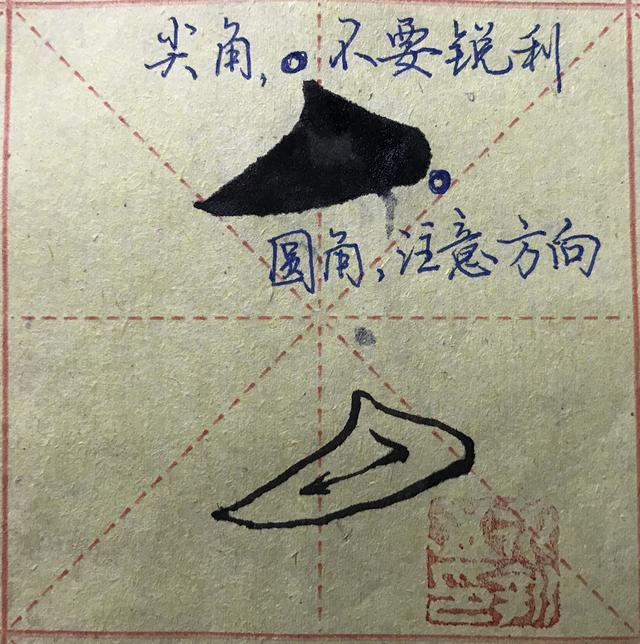 尖角，不要锐利
圆角，注意方向